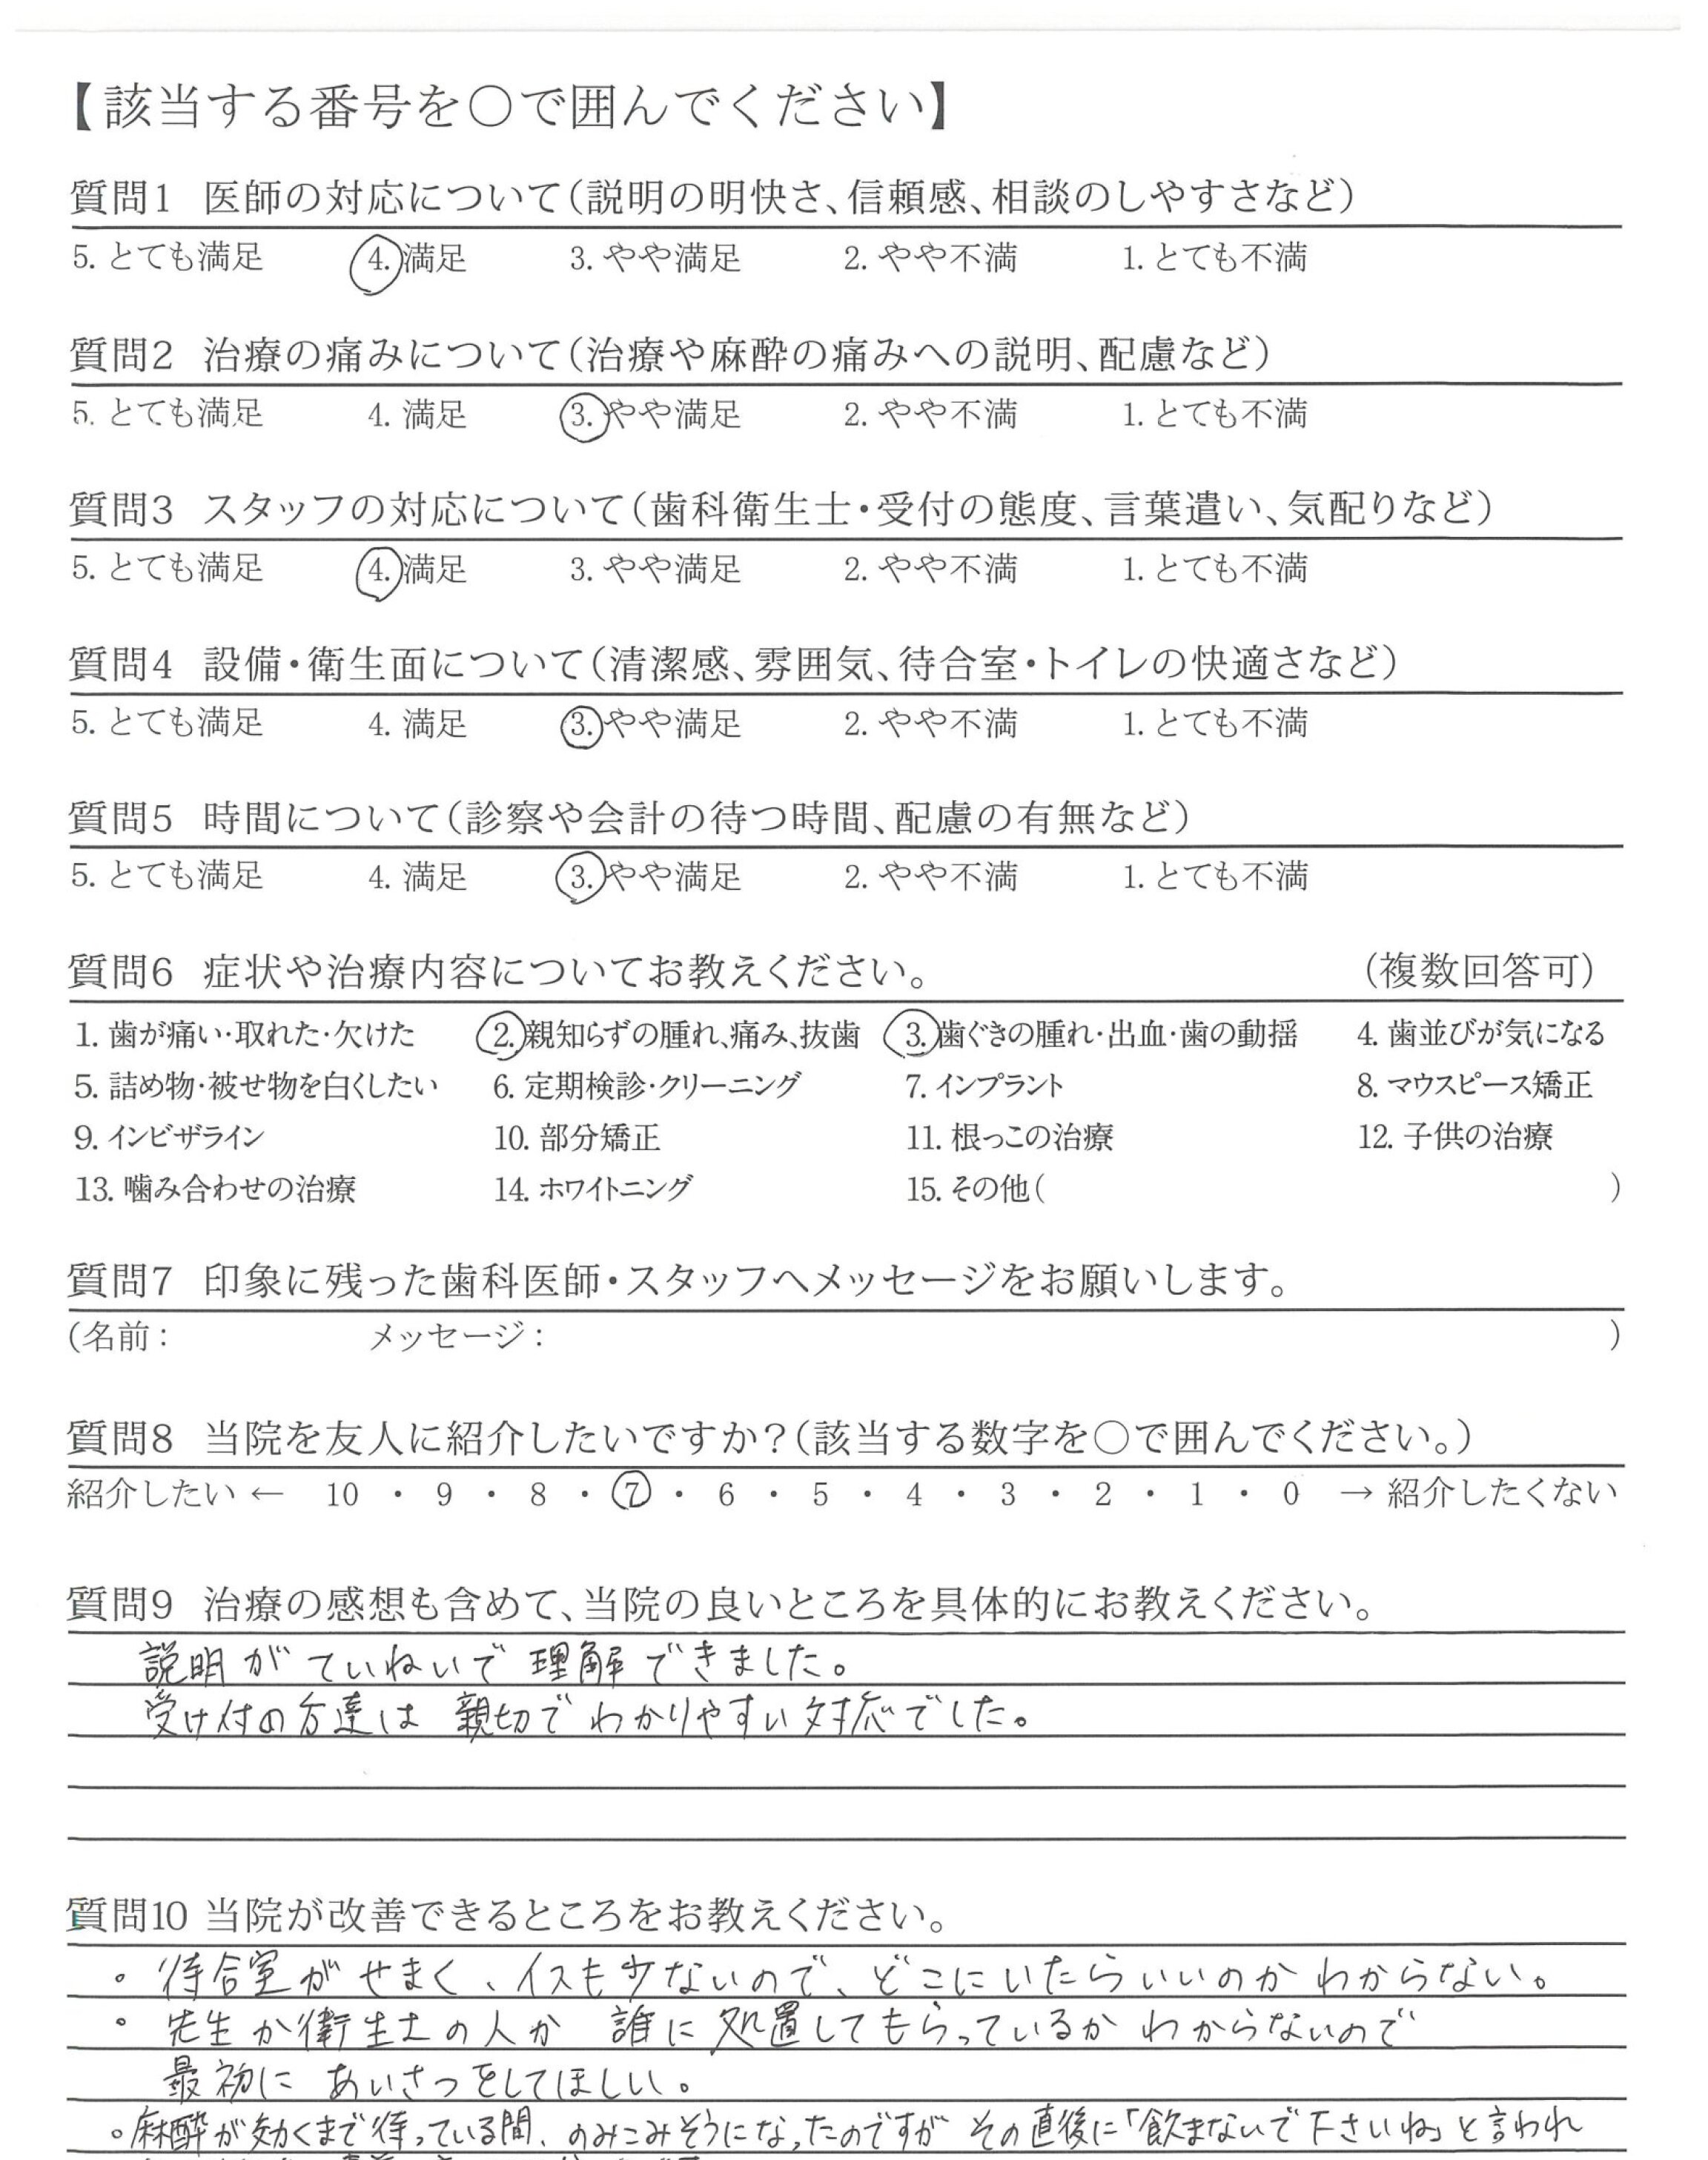 【該当する番号を〇で囲んでください】
質問1 医師の対応について(説明の明快さ、信頼感、相談のしやすさなど)
5. とても満足 4. 満足 3. やや満足 2. やや不満 1. とても不満
質問2 治療の痛みについて(治療や麻酔の痛みへの説明、配慮など)
5. とても満足 4. 満足 3. やや満足 2. やや不満 1. とても不満
質問3 スタッフの対応について(歯科衛生士・受付の態度、言葉遣い、気配りなど)
5. とても満足 4. 満足 3. やや満足 2. やや不満 1. とても不満
質問4 設備・衛生面について(清潔感、雰囲気、待合室・トイレの快適さなど)
5. とても満足 4. 満足 3. やや満足 2. やや不満 1. とても不満
質問5 時間について(診察や会計の待つ時間、配慮の有無など)
5. とても満足 4. 満足 3. やや満足 2. やや不満 1. とても不満
質問6 症状や治療内容についてお教えください。 (複数回答可)
1. 歯が痛い・取れた・欠けた 2. 親知らずの腫れ、痛み、抜歯 3. 歯ぐきの腫れ・出血・歯の動揺 4. 歯並びが気になる
5. 詰め物・被せ物を白くしたい 6. 定期検診・クリーニング 7. インプラント 8. マウスピース矯正
9. インビザライン 10. 部分矯正 11. 根っこの治療 12. 子供の治療
13. 噛み合わせの治療 14. ホワイトニング 15. その他( )
質問7 印象に残った歯科医師・スタッフへメッセージをお願いします。
(名前: メッセージ: )
質問8 当院を友人に紹介したいですか?(該当する数字を〇で囲んでください。)
紹介したい ← 10 ・ 9 ・ 8 ・ 7 ・ 6 ・ 5 ・ 4 ・ 3 ・ 2 ・ 1 ・ 0 → 紹介したくない
質問9 治療の感想も含めて、当院の良いところを具体的にお教えください。
説明がていねいで理解できました。
受け付の方達は親切でわかりやすい対応でした。
質問10 当院が改善できるところをお教えください。
。待合室がせまく、イスも少ないので、どこにいたらいいのかわからない。
。先生か衛生士の人か 誰に処置してもらっているかわからないので
最初に あいさつをしてほしい。
。麻酔が効くまで待っている間、のみこみそうになったのですが その直後に「飲まないで下さいね」と言われ